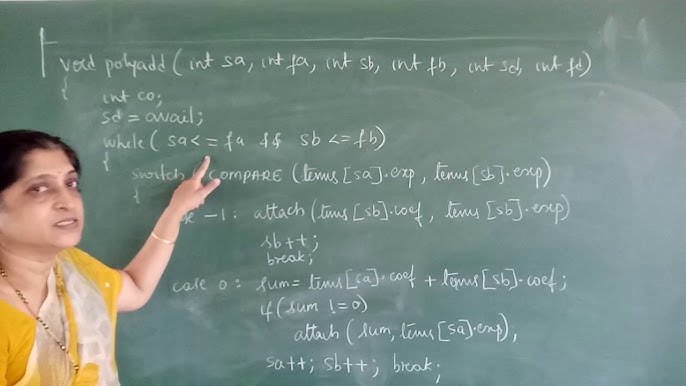 void polyadd (int sa, int fa, int sb, int fb, int sd, int fd)
{
int co;
sd = avail;
while ( sa<=fa && sb <= fb)
{
switch COMPARE (terms[sa].exp, terms[sb].exp)
{
-1: attach (terms[sb].coef, terms[sb].exp)
sb++;
break;
case 0: sum= terms[sa].coef + terms[sb].coef;
if (sum != 0)
attach (sum, terms[sa].exp);
sa++; sb++; break;